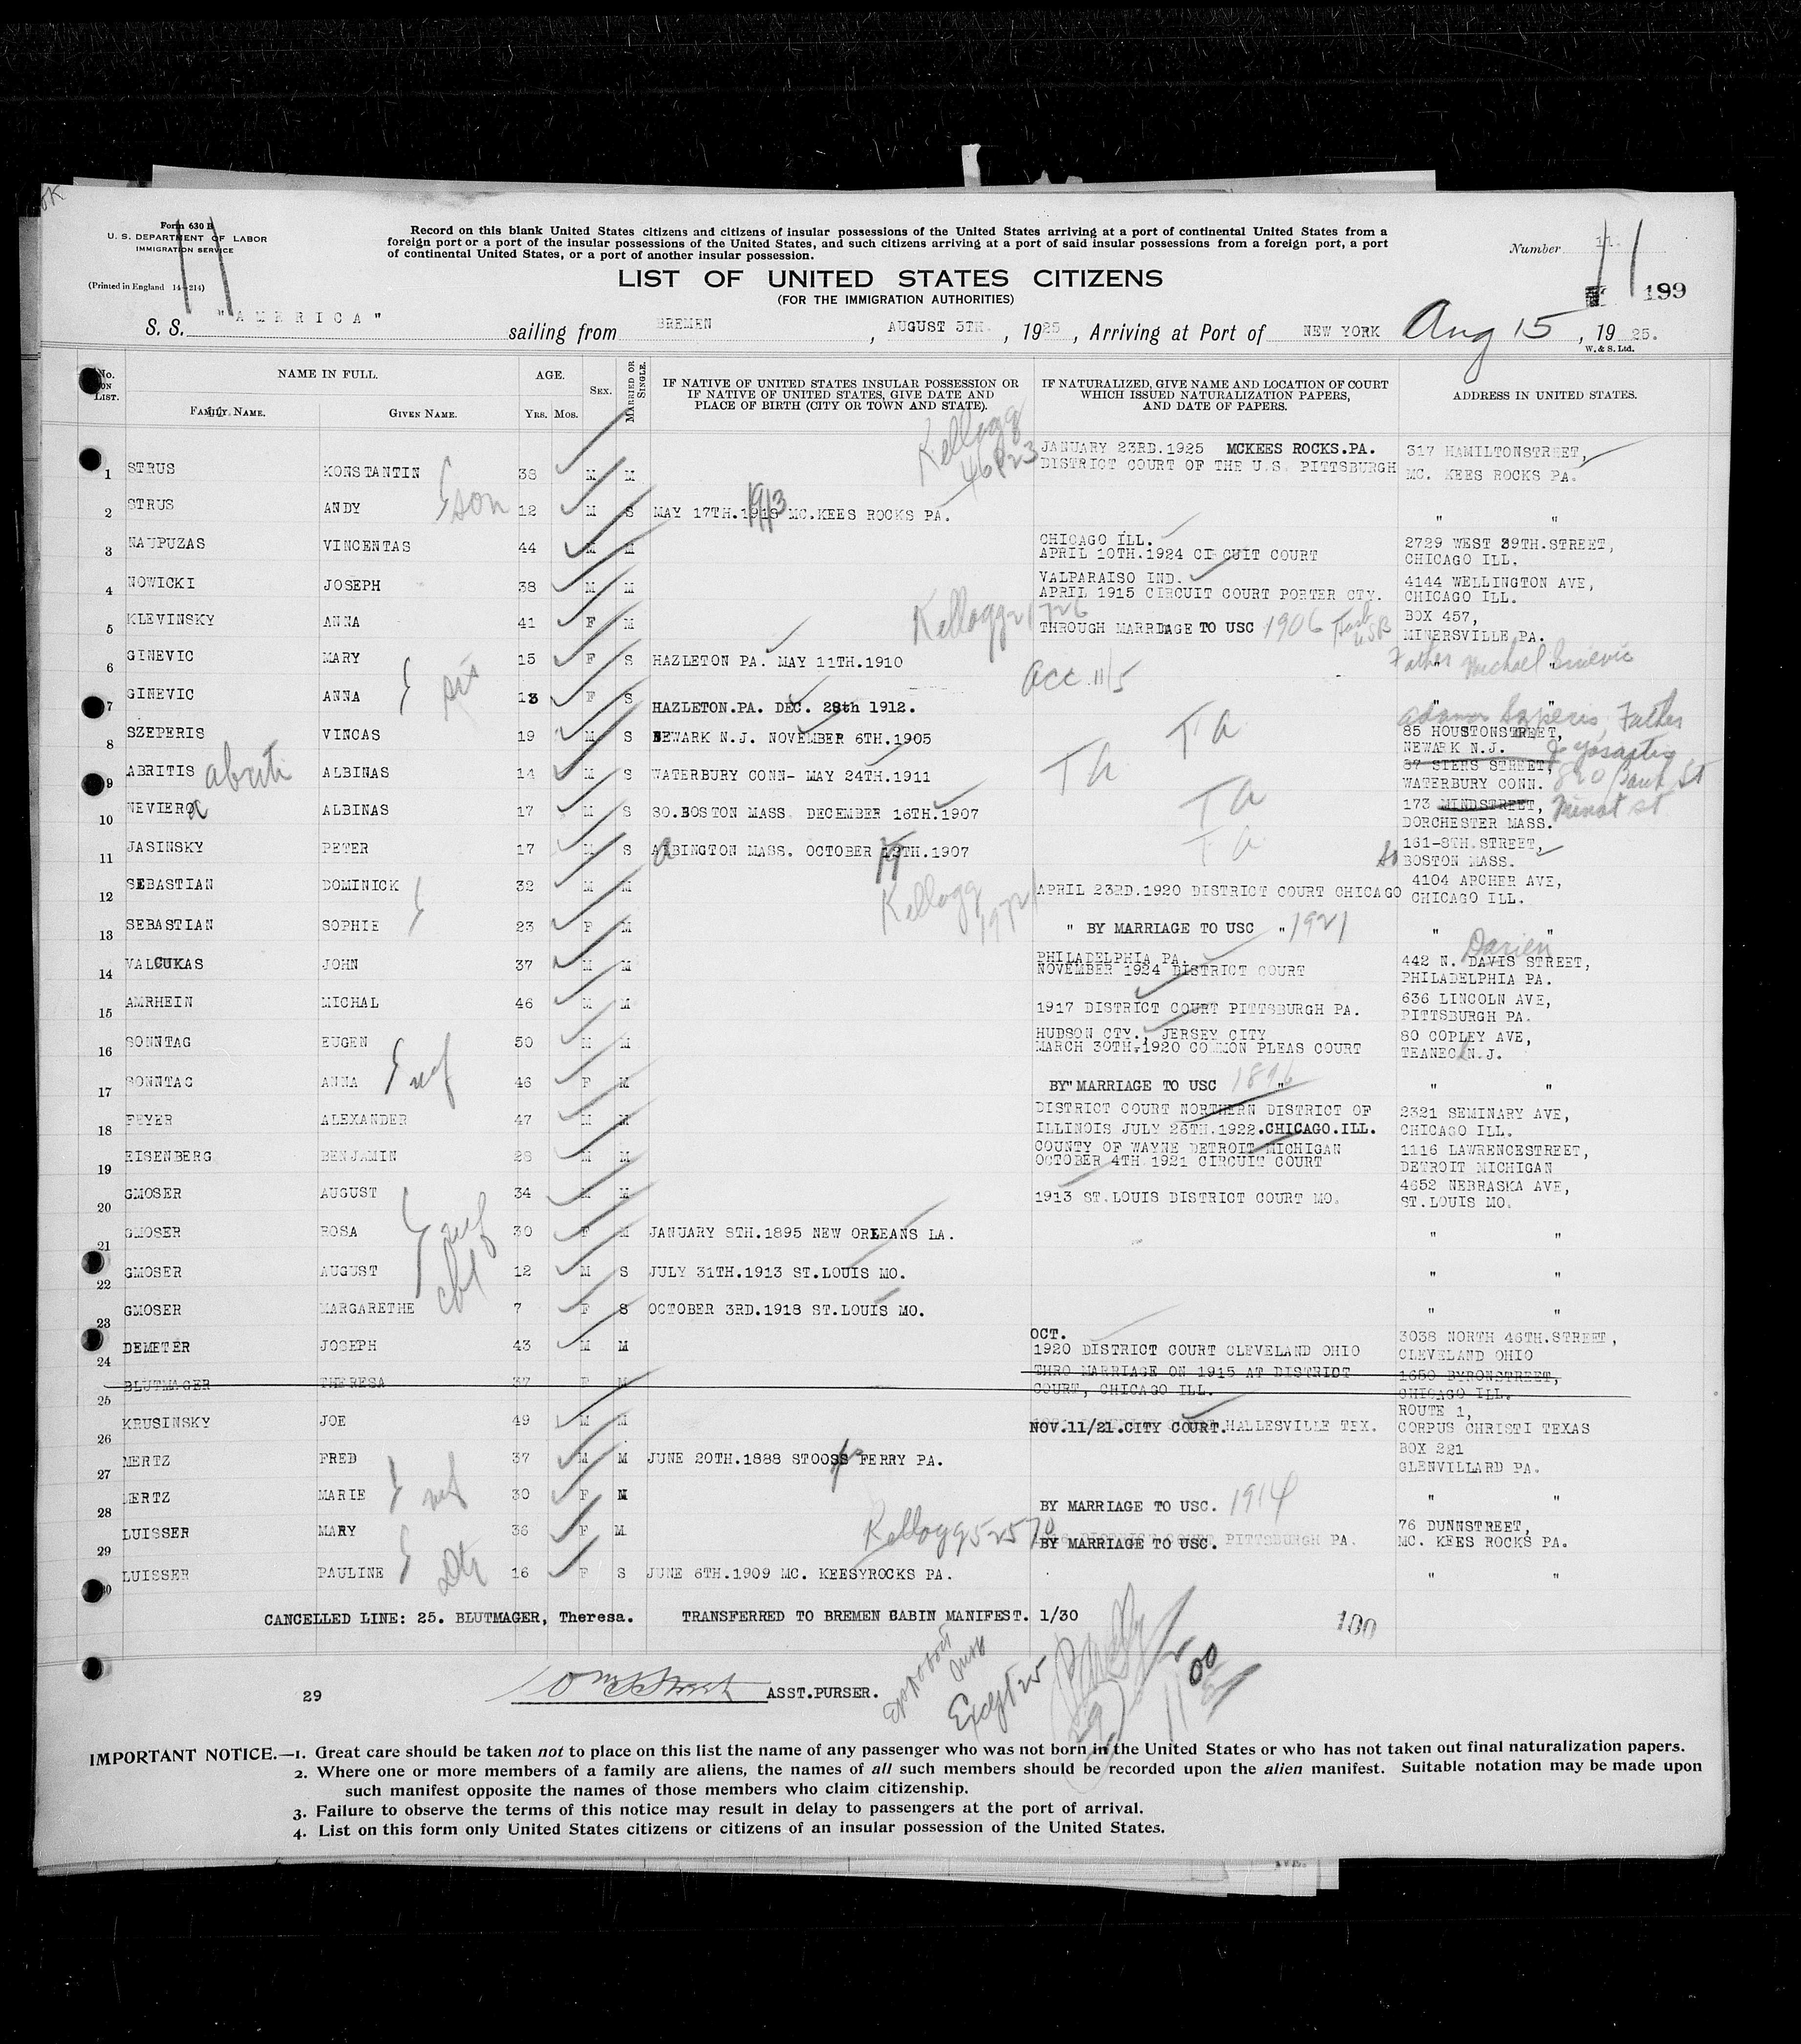 OK
Form 630 B
U. S. DEPARTMENT OF LABOR
IMMIGRATION SERVICE
(Printed in England 14-214)
11
Record on this blank United States citizens and citizens of insular possessions of the United States arriving at a port of continental United States from a
foreign port or a port of the insular possessions of the United States, and such citizens arriving at a port of said insular possessions from a foreign port, a port
of continental United States, or a port of another insular possession.
Number 11.
11
199
LIST OF UNITED STATES CITIZENS
(FOR THE IMMIGRATION AUTHORITIES)
S. S. "AMERICA" sailing from BREMEN, AUGUST 5TH., 1925, Arriving at Port of NEW YORK Aug 15, 1925.
W. & S. Ltd.
No. ON LIST. NAME IN FULL. AGE. SEX. MARRIED OR SINGLE. IF NATIVE OF UNITED STATES INSULAR POSSESSION OR IF NATIVE OF UNITED STATES, GIVE DATE AND PLACE OF BIRTH (CITY OR TOWN AND STATE). IF NATURALIZED, GIVE NAME AND LOCATION OF COURT WHICH ISSUED NATURALIZATION PAPERS, AND DATE OF PAPERS. ADDRESS IN UNITED STATES.
FAMILY NAME. GIVEN NAME. YRS. MOS.
1 STRUS KONSTANTIN 38 M M Kellogg 46823 JANUARY 23RD.1925 MCKEES ROCKS.PA. DISTRICT COURT OF THE U.S. PITTSBURGH 317 HAMILTONSTREET, MC. KEES ROCKS PA.
2 STRUS ANDY son 12 M S MAY 17TH.1913 MC.KEES ROCKS PA. " "
3 NAUPUZAS VINCENTAS 44 M M CHICAGO ILL. APRIL 10TH.1924 CIRCUIT COURT 2729 WEST 39TH.STREET, CHICAGO ILL.
4 NOWICKI JOSEPH 38 M M VALPARAISO IND. APRIL 1915 CIRCUIT COURT PORTER CTY. 4144 WELLINGTON AVE, CHICAGO ILL.
5 KLEVINSKY ANNA 41 F M Kellogg 21726 THROUGH MARRIAGE TO USC 1906 BOX 457, MINERSVILLE PA.
6 GINEVIC MARY 15 F S HAZLETON PA. MAY 11TH.1910 Father Michael " "
7 GINEVIC ANNA sis 13 F S HAZLETON.PA. DEC. 28th 1912. acc 11/5 " "
8 SZEPERIS VINCAS 19 M S NEWARK N.J. NOVEMBER 6TH.1905 TA Father 85 HOUSTONSTREET, NEWARK N.J.
9 ABRITIS abriti ALBINAS 14 M S WATERBURY CONN- MAY 24TH.1911 TA 37 SIERS STREET, WATERBURY CONN. St
10 NEVIERO a ALBINAS 17 M S SO.BOSTON MASS. DECEMBER 16TH.1907 TA 173 MINDSTREET, Minot St DORCHESTER MASS.
11 JASINSKY PETER 17 M S ABINGTON MASS. OCTOBER 19TH.1907 TA 161-8TH.STREET, So BOSTON MASS.
12 SEBASTIAN DOMINICK 32 M M Kellogg APRIL 23RD.1920 DISTRICT COURT CHICAGO 4104 ARCHER AVE, CHICAGO ILL.
13 SEBASTIAN SOPHIE 23 F M " BY MARRIAGE TO USC " 1921 " "
14 VALCUKAS JOHN 37 M M PHILADELPHIA PA. NOVEMBER 1924 DISTRICT COURT Darien 442 N. DAVIS STREET, PHILADELPHIA PA.
15 AMRHEIN MICHAL 46 M M 1917 DISTRICT COURT PITTSBURGH PA. 636 LINCOLN AVE, PITTSBURGH PA.
16 SONNTAG EUGEN 50 M M HUDSON CTY., JERSEY CITY MARCH 30TH.1920 COMMON PLEAS COURT 80 COPLEY AVE, TEANECK N.J.
17 SONNTAG ANNA wf 46 F M BY " MARRIAGE TO USC 1896 " " "
18 FEYER ALEXANDER 47 M M DISTRICT COURT NORTHERN DISTRICT OF ILLINOIS JULY 26TH.1922.CHICAGO.ILL. 2321 SEMINARY AVE, CHICAGO ILL.
19 EISENBERG BENJAMIN 28 M M COUNTY OF WAYNE DETROIT MICHIGAN OCTOBER 4TH 1921 CIRCUIT COURT 1116 LAWRENCESTREET, DETROIT MICHIGAN
20 GMOSER AUGUST 34 M M 1913 ST.LOUIS DISTRICT COURT MO. 4652 NEBRASKA AVE, ST.LOUIS MO.
21 GMOSER ROSA wf 30 F M JANUARY 8TH.1895 NEW ORLEANS LA. " "
22 GMOSER AUGUST chl 12 M S JULY 31TH.1913 ST.LOUIS MO. " "
23 GMOSER MARGARETHE 7 F S OCTOBER 3RD.1918 ST.LOUIS MO. " "
24 DEMETER JOSEPH 43 M M OCT. 1920 DISTRICT COURT CLEVELAND OHIO 3038 NORTH 46TH.STREET, CLEVELAND OHIO
25 BLUTMAGER THERESA 37 F M THRO MARRIAGE ON 1915 AT DISTRICT COURT, CHICAGO ILL. 1650 BYRONSTREET, CHICAGO ILL.
26 KRUSINSKY JOE 49 M M NOV.11/21.CITY COURT.HALLESVILLE TEX. ROUTE 1, CORPUS CHRISTI TEXAS
27 MERTZ FRED 37 M M JUNE 20TH.1888 STOOSS FERRY PA. BOX 221 GLENVILLARD PA.
28 MERTZ MARIE wf 30 F M BY MARRIAGE TO USC. 1914 " "
29 LUISSER MARY 36 F M Kellogg 52570 BY MARRIAGE TO USC. PITTSBURGH PA. 76 DUNNSTREET, MC. KEES ROCKS PA.
30 LUISSER PAULINE Dtr 16 F S JUNE 6TH.1909 MC. KEESYROCKS PA. " "
CANCELLED LINE: 25. BLUTMAGER, Theresa. TRANSFERRED TO BREMEN CABIN MANIFEST. 1/30
100
29 ASST.PURSER.
Except 25
IMPORTANT NOTICE.—1. Great care should be taken not to place on this list the name of any passenger who was not born in the United States or who has not taken out final naturalization papers.
2. Where one or more members of a family are aliens, the names of all such members should be recorded upon the alien manifest. Suitable notation may be made upon
such manifest opposite the names of those members who claim citizenship.
3. Failure to observe the terms of this notice may result in delay to passengers at the port of arrival.
4. List on this form only United States citizens or citizens of an insular possession of the United States.